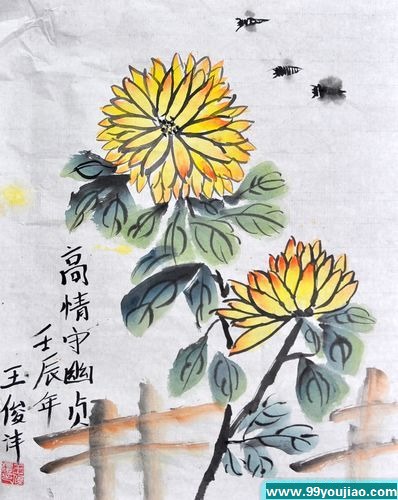 高情守幽贞
壬辰年
王俊沣
www.99youjiao.com